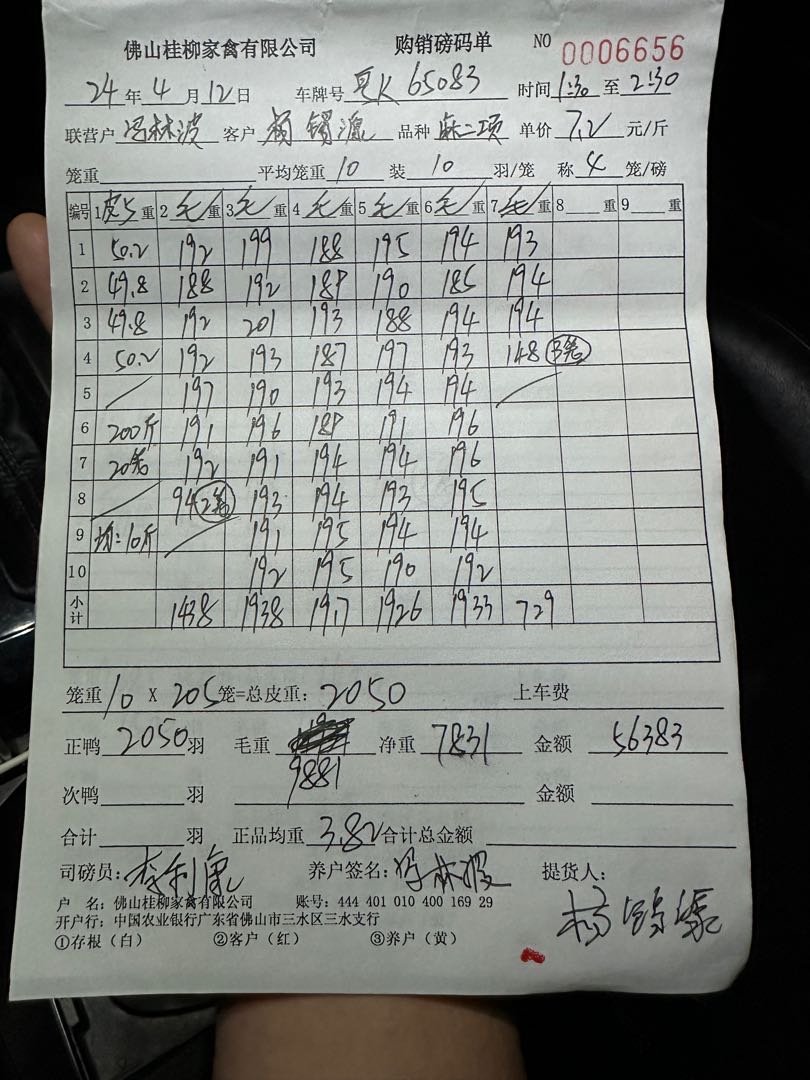 佛山桂柳家禽有限公司 购销磅码单 NO 0006656
24年4月12日 车牌号 K 65083 时间1:30至2:30
联营户 冯林波 客户 杨 品种 麻二项 单价7.2元/斤
笼重 平均笼重10 装10羽/笼 称4笼/磅
编号 1皮5重 2毛重 3毛重 4毛重 5毛重 6毛重 7毛重 8重 9重
1 50.2 192 199 188 195 194 193
2 49.8 188 192 189 190 185 194
3 49.8 192 201 193 188 194 194
4 50.2 192 193 187 197 193 148 3笼
5 197 190 193 194 194
6 200斤 191 196 189 191 196
7 20笼 192 191 194 194 196
8 94 2笼 193 194 193 195
9 均:10斤 191 195 194 194
10 192 195 190 192
小计 1438 1938 1917 1926 1933 729
笼重10 X 205笼=总皮重:2050 上车费
正鸭2050羽 毛重 9881 净重 7831 金额 56383
次鸭 羽 金额
合计 羽 正品均重3.82 合计总金额
司磅员:李利 养户签名:冯林波 提货人:
杨
户 名:佛山桂柳家禽有限公司 账号:444 401 010 400 169 29
开户行:中国农业银行广东省佛山市三水区三水支行
①存根(白) ②客户(红) ③养户(黄)